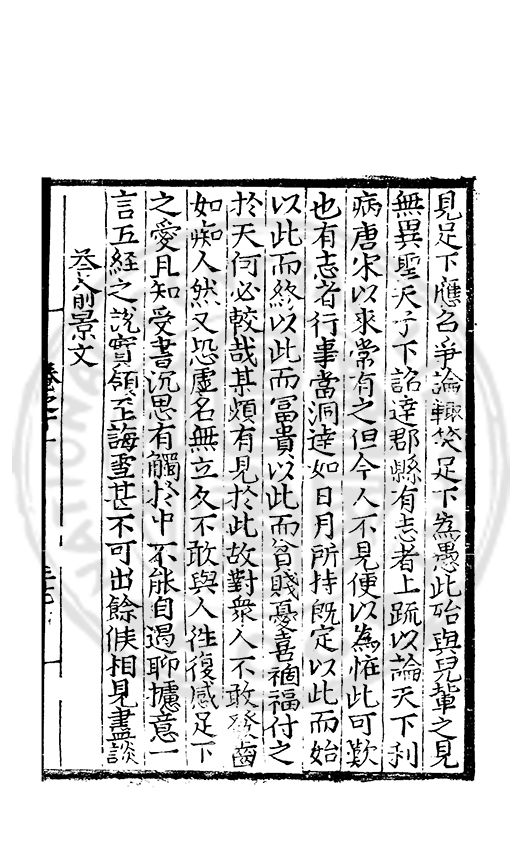 見足下應召爭論輙笑足下為愚此殆與兒輩之見
無異聖天子下詔達郡縣有志者上疏以論天下利
病唐宋以來常有之但今人不見便以為怪此可歎
也有志者行事當洞達如日月所持既定以此而始
以此而終以此而冨貴以此而貧賤憂喜禍福付之
於天何必較哉某頗有見於此故對衆人不敢發齒
如痴人然又恐虛名無立久不敢與人徃復感足下
之愛且知受書沉思有觸於中不能自遏聊攄意一
言五經之說實領至誨雪甚不可出餘俟相見盡談
前景文
卷之十一